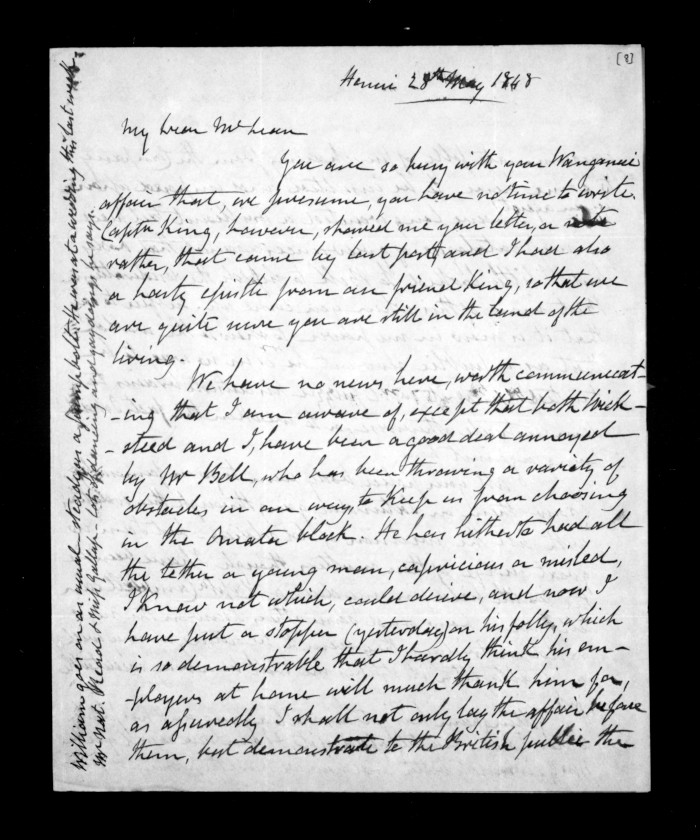 [8]
Henui 28th May 1848
My dear McLean
You are so busy with your Wanganui
affair that, we presume, you have no time to write.
Captn King, however, showed me your letter, or note
rather, that came by last post, and I had also
a hasty epistle from our friend King, so that we
are quite sure you are still in the land of the
living.
We have no news here, worth communicat-
-ing that I am aware of, except that both Wick-
-steed and I, have been a good deal annoyed
by Mr Bell, who has been throwing a variety of
obstacles in our way to keep us from choosing
in the Omata block. He has hitherto had all
the tether a young man, capricious or misled,
I know not which, could desire, and now I
have put a stopper (yesterday) on his folly, which
is so demonstrable that I hardly think his em-
-ployers at home will much thank him for,
as assuredly I shall not only lay the affair before
them, but demonstrate to the British public the
William goes on as usual steady as a pump bolt. He was at a wedding this last week
Mr Nat. Read & Miss Gallop - lots of dancing and gay doings he says.